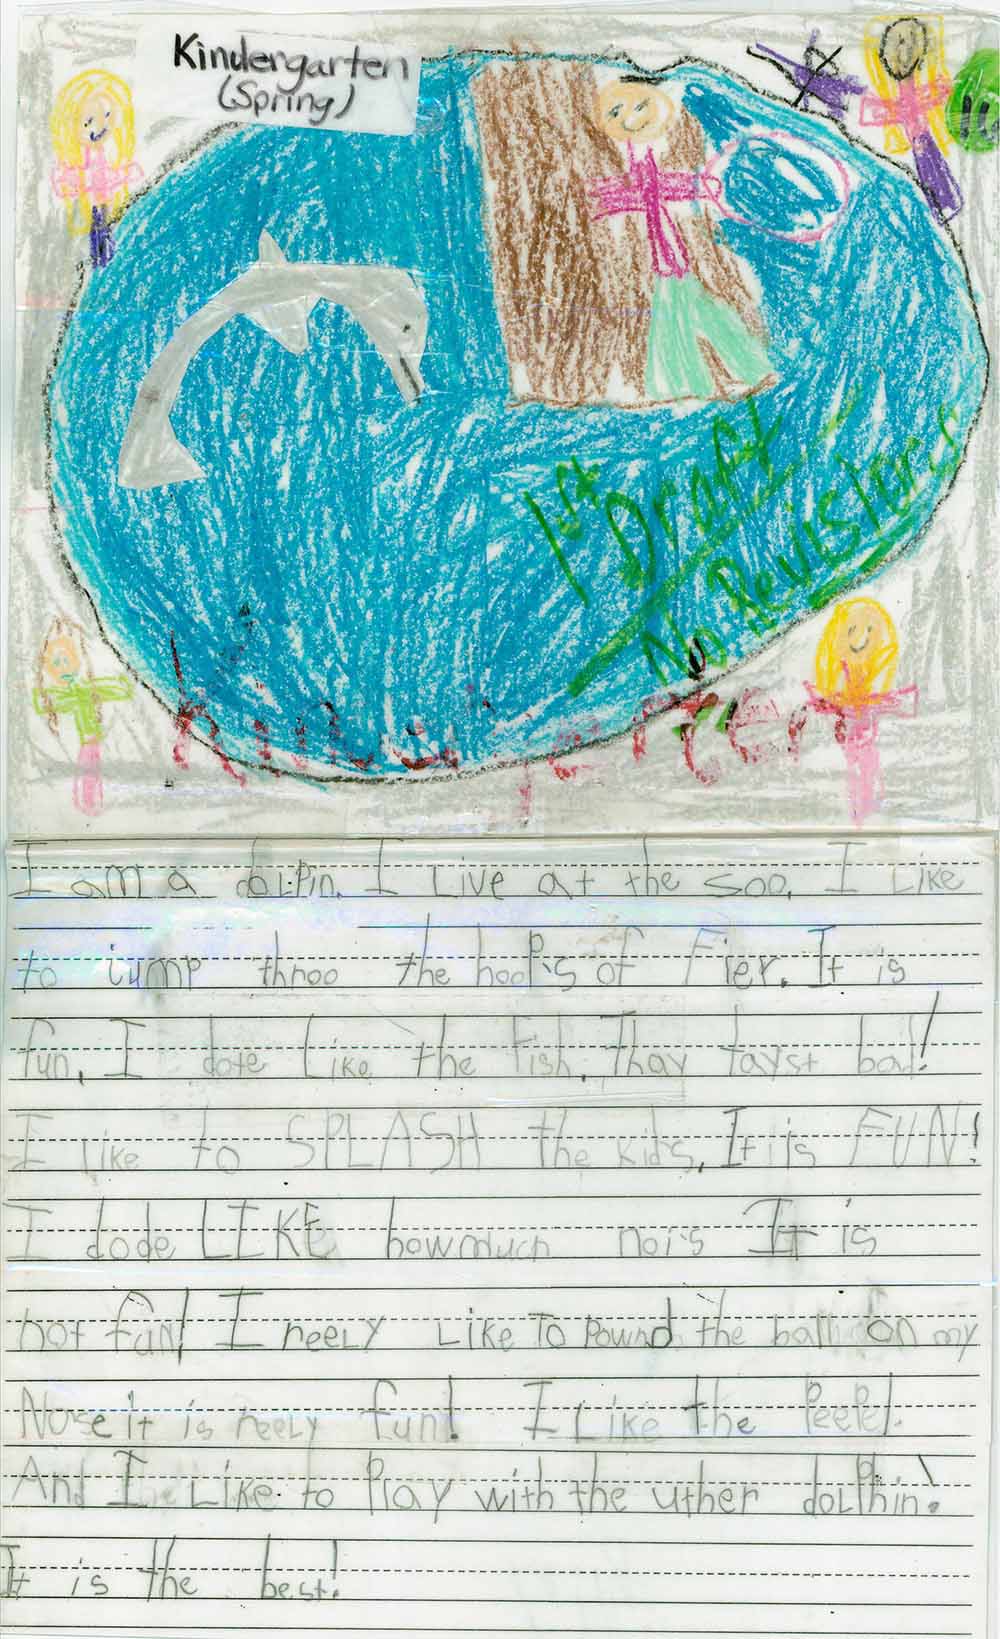 Kindergarten
(Spring)
1st Draft
No Revisions
I am a dolpin. I Live at the Soo. I Like
to jump throo the hoops of Fier. It is
fun. I dote Like the fish. Thay tayst bad!
I Like to SPLASH the kids. It is FUN!
I dode LIKE howmuch nois It is
not fun! I reely Like To Pownd the ball on my
Nose it is reely fun! I Like the PeePel.
And I Like to Play with the uther dolphin!
It is the best!